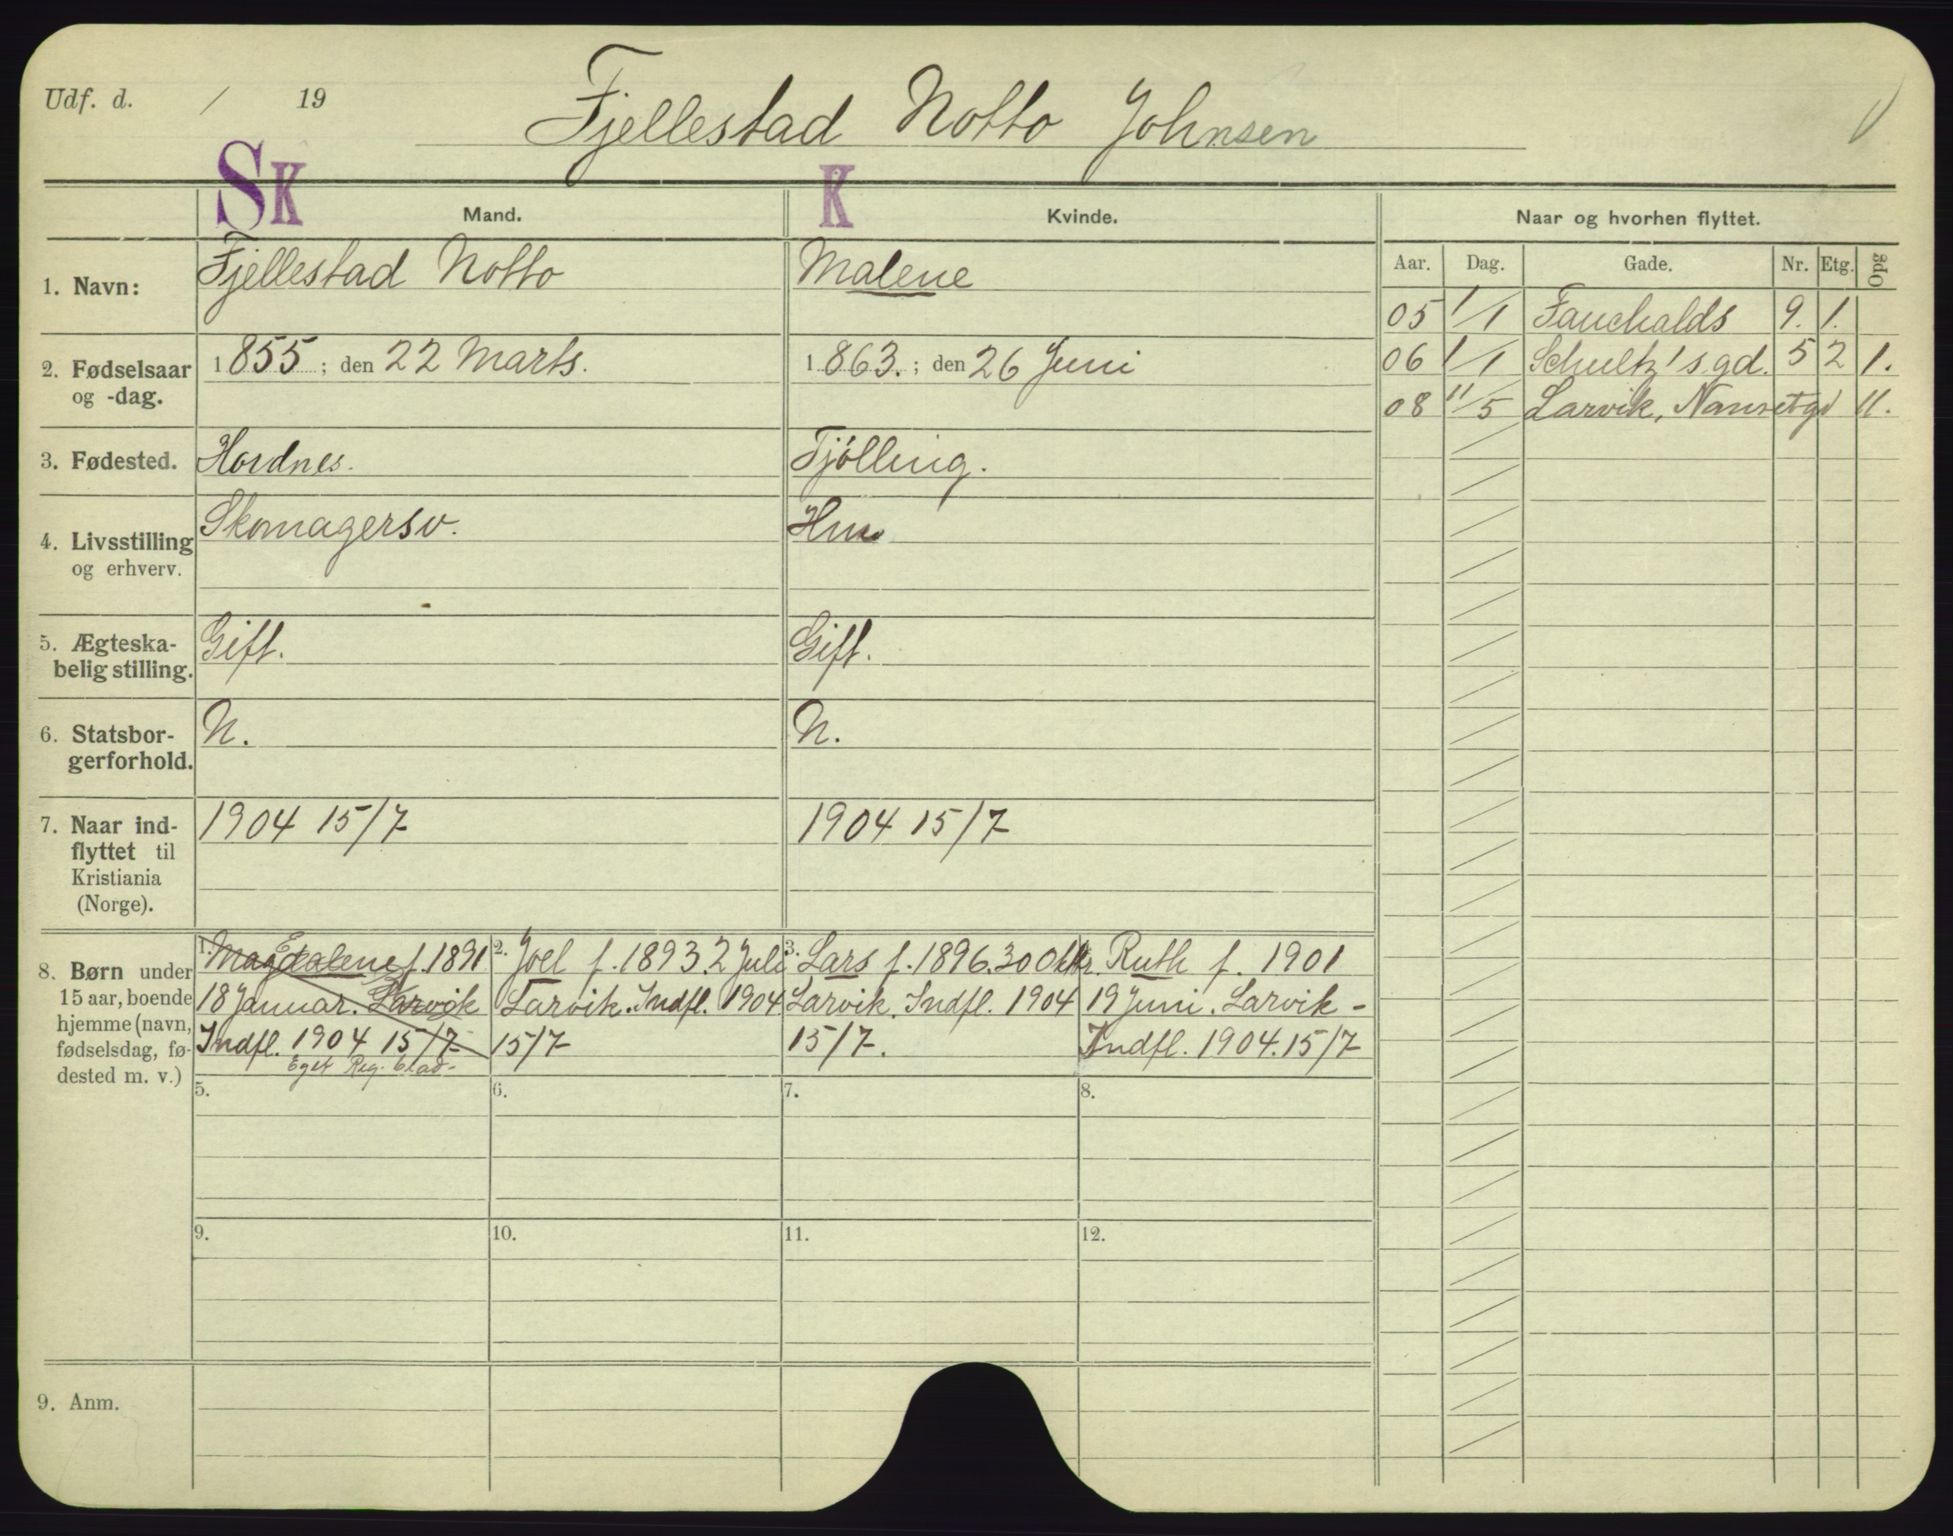 Udf. d. / 19
Fjellestad Notto Johnsen
SK
K
Mand.
Kvinde.
Naar og hvorhen flyttet.
Aar. Dag. Gade. Nr. Etg. Opg
1. Navn: Fjellestad Notto Malene
05 1/1 Fauchalds 9. 1.
2. Fødselsaar og -dag. 1855; den 22 Marts. 1863.; den 26 Juni
06 1/1 Schultz's gd. 5 2 1.
08 11/5 Larvik, Nansetgd 11.
3. Fødested. Hordnes. Tjølling.
4. Livsstilling og erhverv. Skomagersv.
5. Ægteska-
belig stilling. Gift. Gift.
6. Statsbor-
gerforhold. N. N.
7. Naar ind-
flyttet til
Kristiania
(Norge).
1904 15/7 1904 15/7
8. Børn under
15 aar, boende
hjemme (navn,
fødselsdag, fø-
dested m. v.)
1. Magdalene f. 1891
18 Januar. Larvik
Indfl. 1904 15/7
Eget Reg. blad-
2. Joel f. 1893. 2 Juli
Larvik. Indfl. 1904
15/7
3. Lars f. 1896. 30 Oktr.
Larvik. Indfl. 1904
15/7.
Ruth f. 1901
19 Juni. Larvik -
Indfl. 1904. 15/7
5. 6. 7. 8.
9. 10. 11. 12.
9. Anm.